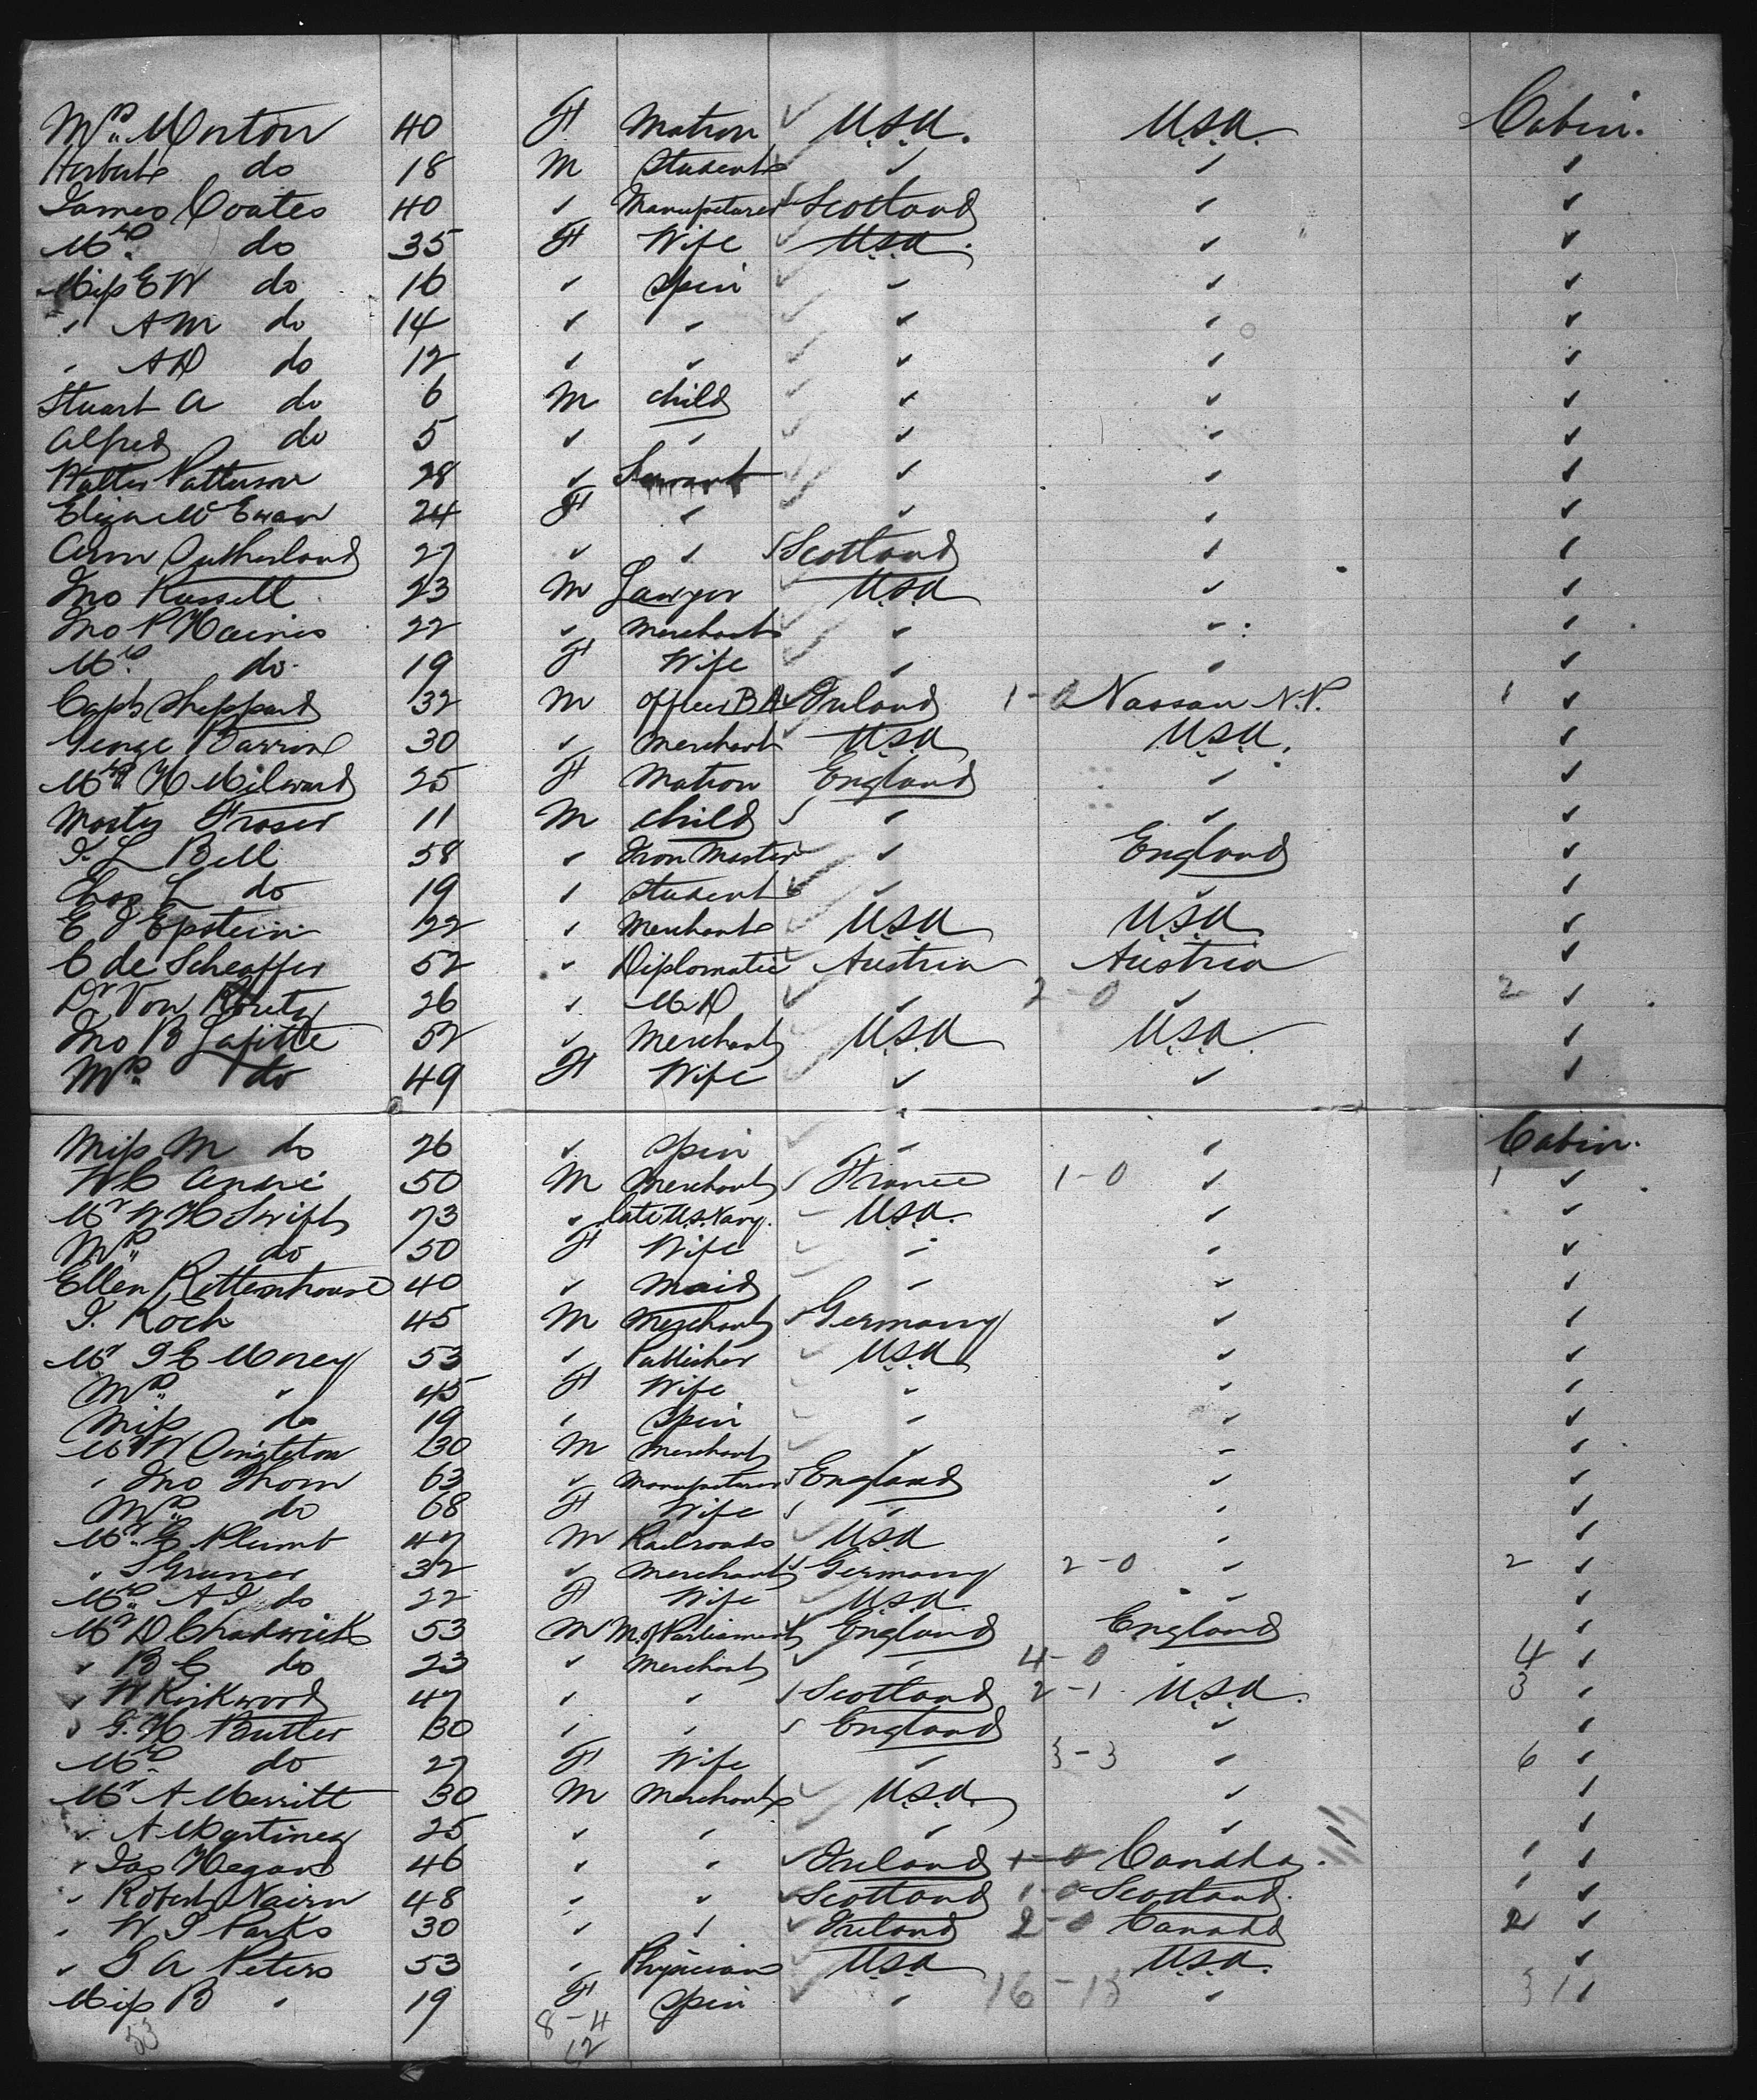 Mrs. Morton 40 F Matron U.S.A. U.S.A. Cabin.
Herbert do 18 M Student ✓ ✓ ✓
James Coates 40 ✓ Manufacturer Scotland ✓ ✓
Mrs. do 35 F Wife U.S.A. ✓ ✓
Miss E W do 16 ✓ Spin ✓ ✓ ✓
✓ A M do 14 ✓ ✓ ✓ ✓ ✓
✓ A D do 12 ✓ ✓ ✓ ✓ ✓
Stuart A do 6 M child ✓ ✓ ✓
Alfred do 5 ✓ ✓ ✓ ✓ ✓
Walter Patterson 28 ✓ Servant ✓ ✓ ✓
Eliza McEwan 24 F ✓ ✓ ✓ ✓
Ann Sutherland 27 ✓ ✓ Scotland ✓ ✓
Jno Russell 23 M Lawyer U.S.A ✓ ✓
Jno P Haines 22 ✓ Merchant ✓ ✓ ✓
Mrs. do 19 F Wife ✓ ✓ ✓
Capt Sheppard 32 M Officer B A Ireland 1-0 Nassau N.P. 1 ✓
George Barron 30 ✓ Merchant U.S.A U.S.A. ✓
Mrs H Milward 25 F Matron England ✓ ✓
Master Fraser 11 M child ✓ ✓ ✓
I. L Bell 58 ✓ Iron Master ✓ England ✓
Chas L do 19 ✓ Student ✓ ✓ ✓
E J Epstein 22 ✓ Merchant U.S.A U.S.A ✓
C de Scheaffer 52 ✓ Diplomatic Austria Austria ✓
Dr Von 26 ✓ M D ✓ 2-0 ✓ 2 ✓
Jno B Lafitte 52 ✓ Merchant U.S.A U.S.A. ✓
Mrs. do 49 F Wife ✓ ✓ ✓
Miss M do 26 ✓ Spin ✓ ✓ Cabin.
W C André 50 M Merchant France 1-0 ✓ 1 ✓
Mr W H Swift 73 ✓ late U.S. Navy. U.S.A. ✓ ✓
Mrs. do 50 F Wife ✓ ✓ ✓
Ellen Rittenhouse 40 ✓ Maid ✓ ✓ ✓
I. Koch 45 M Merchant Germany ✓ ✓
Mr I E Morey 53 ✓ Publisher U.S.A ✓ ✓
Mrs. ✓ 45 F Wife ✓ ✓ ✓
Miss do 19 ✓ Spin ✓ ✓ ✓
Mr W Singleton 30 M Merchant ✓ ✓ ✓
✓ Jno Thom 63 ✓ Manufacturer England ✓ ✓
Mrs. do 68 F Wife ✓ ✓ ✓
Mr. E Plumb 47 M Railroads U.S.A ✓ ✓
✓ S Gruner 32 ✓ Merchant Germany 2-0 ✓ 2 ✓
Mrs. A I do 22 F Wife U.S.A. ✓ ✓
Mr D Chadwick 53 M M. of Parliament England England ✓
✓ B C do 23 ✓ Merchant ✓ 4-0 ✓ 4 ✓
✓ W Kirkwood 47 ✓ ✓ Scotland 2-1 U.S.A. 3 ✓
✓ G. H Butler 30 ✓ ✓ England ✓ ✓
Mrs. do 27 F Wife ✓ 3-3 ✓ 6 ✓
Mr A Merritt 30 M Merchant U.S.A. ✓ ✓
✓ A Martinez 25 ✓ ✓ ✓ ✓ ✓
✓ Jas Hegan 46 ✓ ✓ Ireland 1-0 Canada. 1 ✓
✓ Robert Nairn 48 ✓ ✓ Scotland 1-0 Scotland. 1 ✓
✓ W I Parks 30 ✓ ✓ Ireland 2-0 Canada 2 ✓
✓ G A Peters 53 ✓ Physician U.S.A U.S.A. ✓
Miss B ✓ 19 F Spin ✓ 16-15 ✓ 31 ✓
53 8-4
12